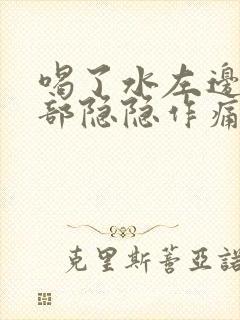 喝了水左邊
部隐隐作痛
克里斯蒂亞諾